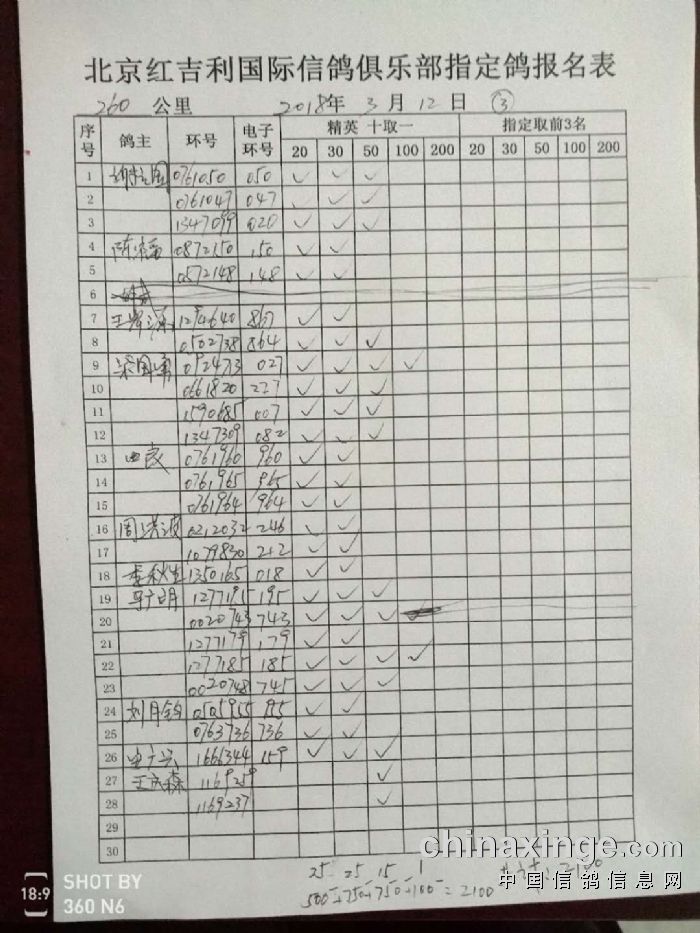 北京红吉利国际信鸽俱乐部指定鸽报名表
260 公里 2018年 3月 12日 ③
序号 鸽主 环号 电子环号 精英 十取一 指定取前3名
20 30 50 100 200 20 30 50 100 200
1 0761050 050 ✓ ✓ ✓
2 0761047 047 ✓ ✓ ✓
3 1347099 020 ✓ ✓ ✓
4 0872150 150 ✓ ✓
5 0572148 148 ✓ ✓
6
7 1294640 ✓ ✓
8 0502738 864 ✓ ✓ ✓
9 梁国勇 092473 027 ✓ ✓ ✓ ✓
10 0661820 227 ✓ ✓ ✓
11 1590685 007 ✓ ✓ ✓
12 1347309 082 ✓ ✓ ✓
13 0761960 960 ✓ ✓
14 0761965 965 ✓ ✓
15 0761964 964 ✓ ✓
16 周洪波 0212032 246 ✓ ✓
17 1079830 212 ✓ ✓
18 李秋生 1350165 018 ✓ ✓
19 1277195 195 ✓ ✓ ✓
20 0020743 743 ✓ ✓ ✓
21 1277179 179 ✓ ✓ ✓
22 1277185 185 ✓ ✓ ✓ ✓
23 0020748 745 ✓ ✓ ✓
24 0505955 ✓ ✓
25 0763736 736 ✓ ✓
26 1666344 159 ✓ ✓ ✓
27 1169259 ✓
28 1169237 ✓
29
30
25 25 15 1
500+750+750+100=2100
共计:2100
chinaxinge.com
中国信鸽信息网
18:9
SHOT BY
360 N6